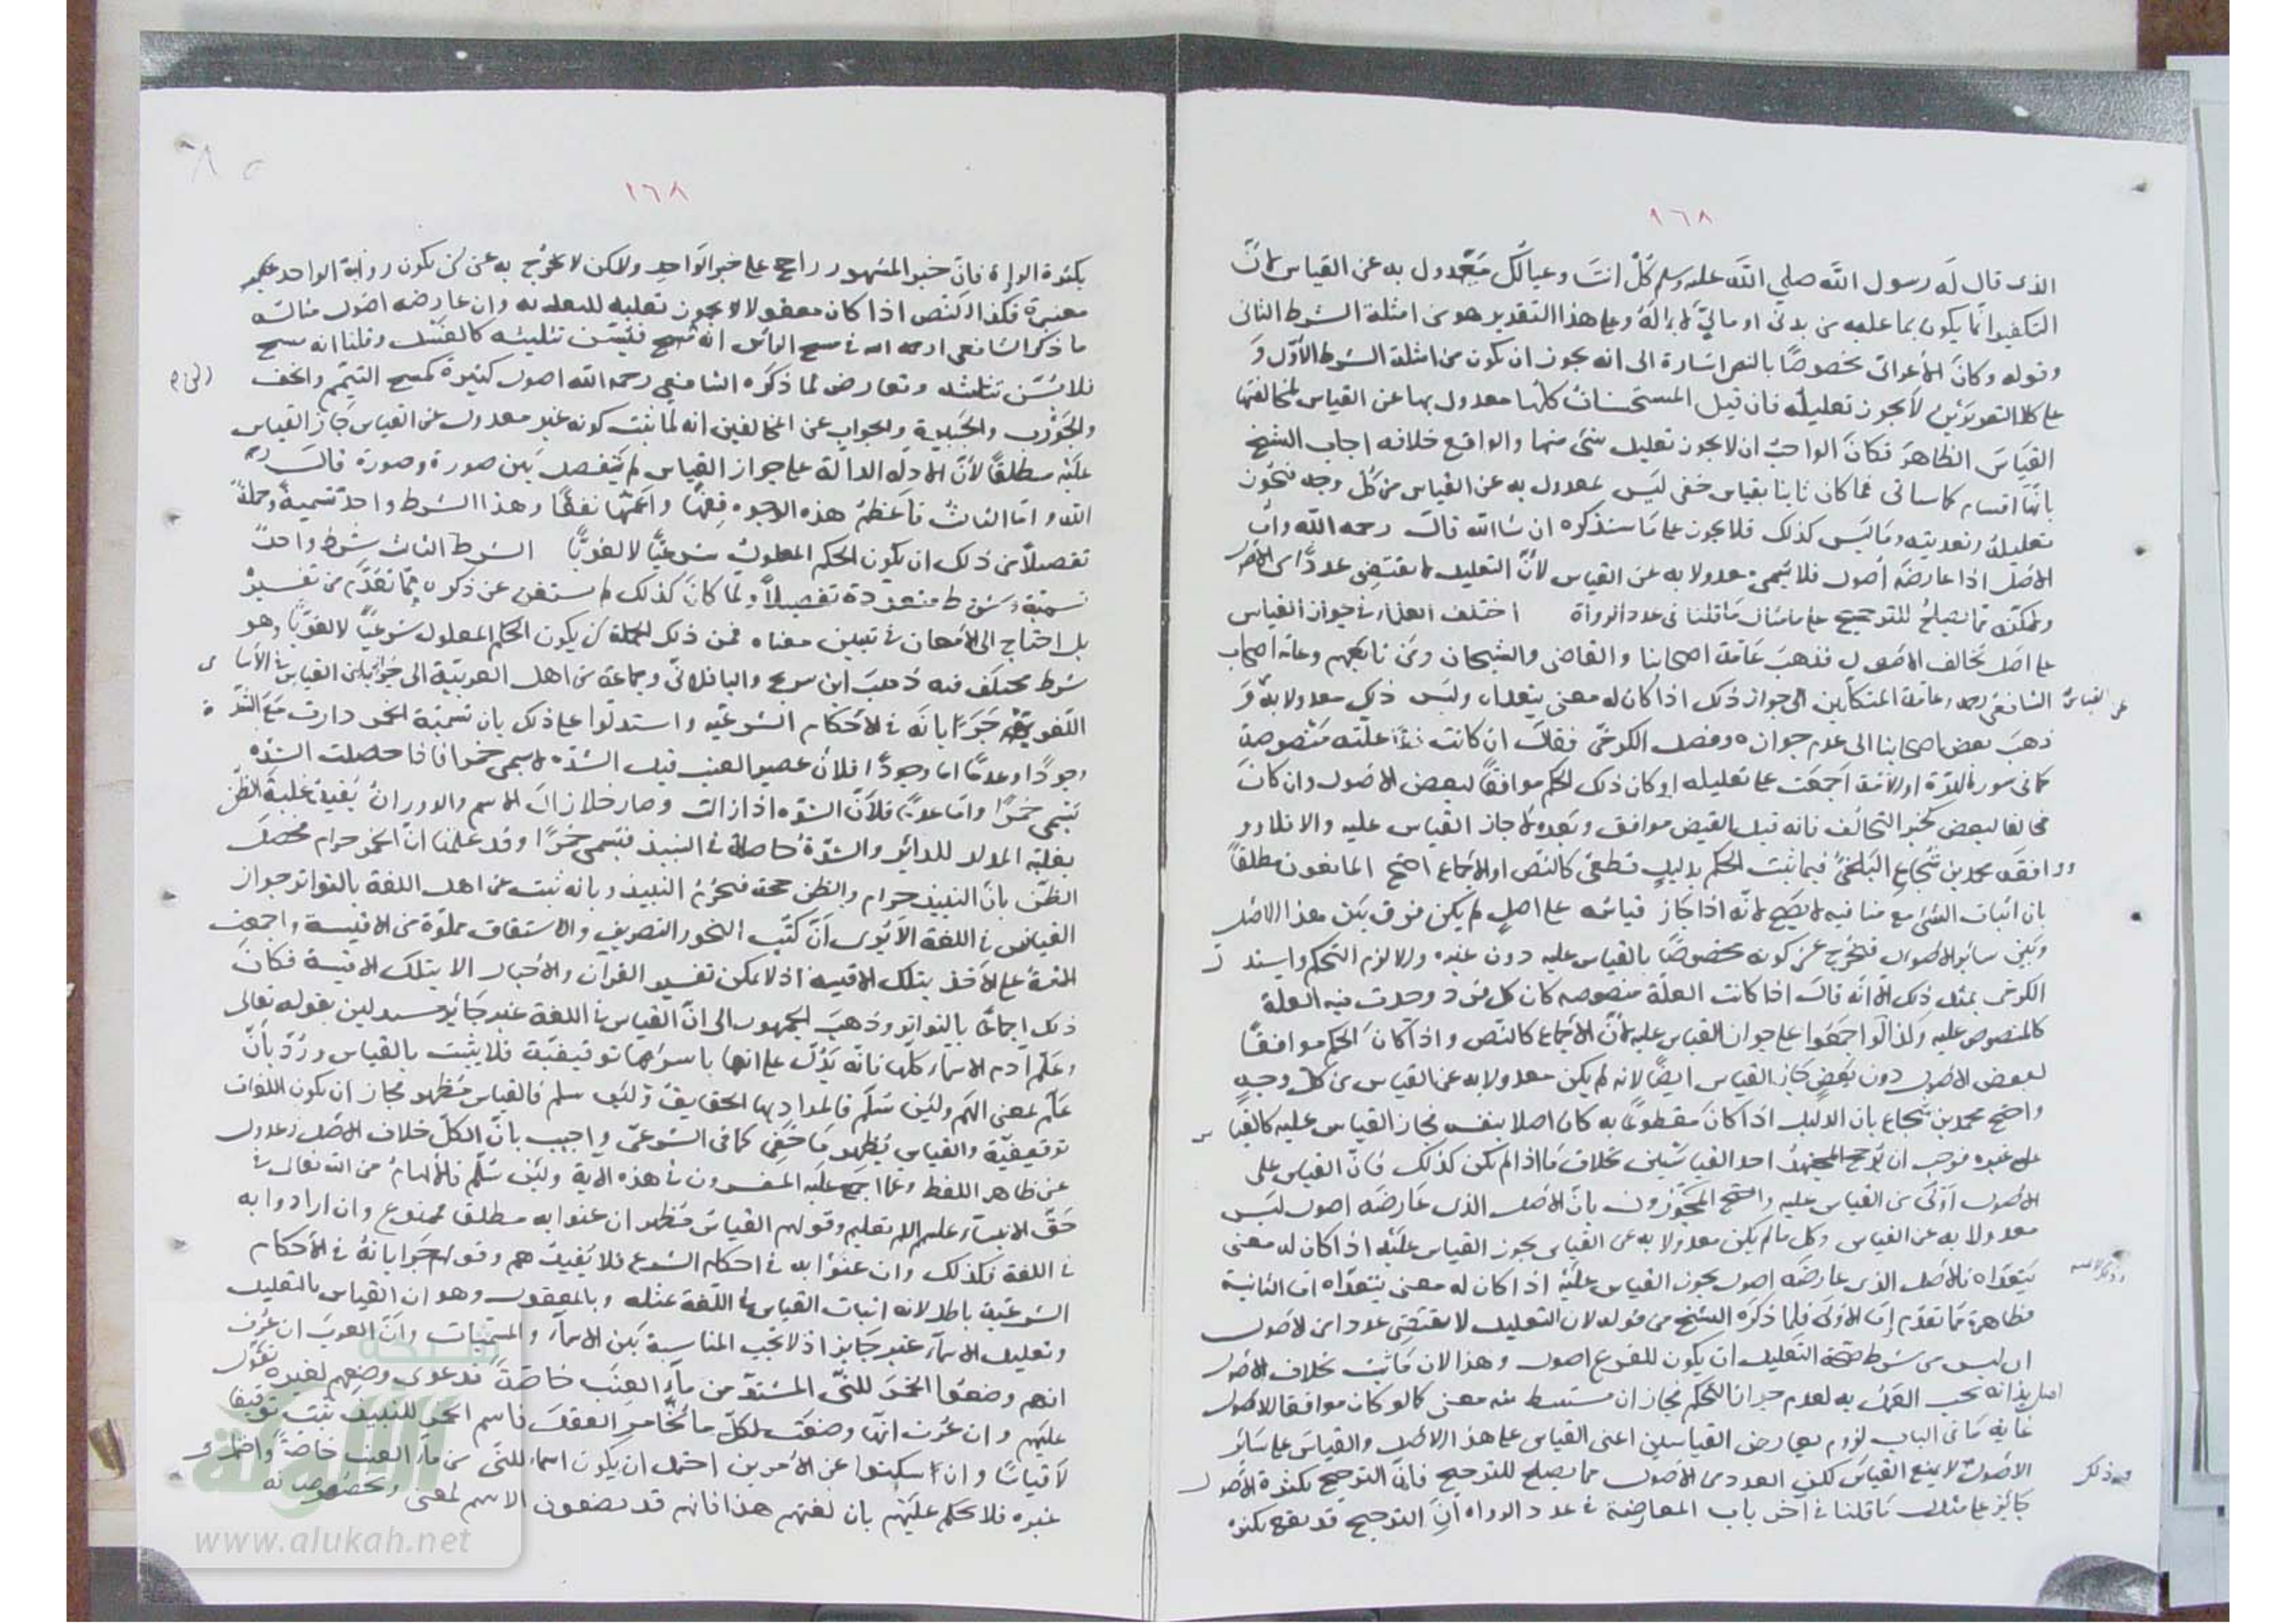 ١٦٨
الذى قال له رسول الله صلى الله عليه وسلم كل انت وعيالك معدول به عن القياس لان
التكفير انما يكون بما عليه من بدنى او مالى لا بما له وعلى هذا التقدير هو من امثلة الشرط الثانى
وقوله وكان الاعرابى مخصوصا بالنص اشارة الى انه يجوز ان يكون من امثلة الشرط الاول و
على كلا التقديرين لا يجوز تعليله فان قيل المستحسنات كلها معدول بها عن القياس لمخالفتها
القياس الظاهر فكان الواجب ان لا يجوز تعليل شئ منها والواقع خلافه اجاب الشيخ
بانها اقسام كما سياتى فما كان ثابتا بقياس خفى ليس بمعدول به عن القياس من كل وجه فيجوز
تعليله وتعديته وما ليس كذلك فلا يجوز على ما سنذكره ان شا الله قال رحمه الله واما
الاصل اذا عارضه اصول فلا يسمى معدولا به عن القياس لان التعليل لا يقتضى عددا من الاصول
ولكنه مما يصلح للترجيح على مثال ما قلنا فى عدد الرواة اختلف العلماء فى جواز القياس
على اصل يخالف الاصول فذهب عامة اصحابنا والقاضى والشيخان ومن تابعهم وعامة اصحاب
الشافعى رحمه وعامة المتكلمين الى جواز ذلك اذا كان له معنى يتعداه وليس ذلك معدولا به و
عن القياس
ذهب بعض اصحابنا الى عدم جوازه وفصل الكرخى فقال ان كانت علته منصوصة
كما فى سورة الهرة او الامة اجمعت على تعليله او كان ذلك الحكم موافقا لبعض الاصول وان كان
مخالفا لبعض كخبر التحالف فانه قبل القبض موافق وبعده لا جاز القياس عليه والا فلا و
ووافقه محمد بن شجاع البلخى فيما ثبت الحكم بدليل قطعى كالنص او الاجماع احتج المانعون مطلقا
بان اثبات الشئ مع منافيه لا يصح لانه اذا جاز قياسه على اصل لم يكن فرق بين هذا الاصل
وبين سائر الاصول فيخرج عن كونه مخصوصا بالقياس عليه دون غيره والا لزم التحكم واستدل
الكرخى بمثل ذلك الا انه قال اذا كانت العلة منصوصه كان كل فرد وجدت فيه العلة
كالمنصوص عليه وكذا لو اجمعوا على جواز القياس عليه لان الاجماع كالنص واذا كان الحكم موافقا
لبعض الاصول دون بعض جاز القياس ايضا لانه لم يكن معدولا به عن القياس من كل وجه
واحتج محمد بن شجاع بان الدليل اذا كان مقطوعا به كان اصلا بنفسه فجاز القياس عليه كالقياس
على غيره فوجب ان يرجح المجتهد احد القياسين بخلاف ما اذا لم يكن كذلك فان القياس على
الاصول اولى من القياس عليه واحتج المجوزون بان الاصل الذى عارضه اصول ليس
معدولا به عن القياس وكل ما لم يكن معدولا به عن القياس يجوز القياس عليه اذا كان له معنى
يتعداه فالاصل الذى عارضه اصول يجوز القياس عليه اذا كان له معنى يتعداه اما الثانية
فظاهرة مما تقدم اما الاولى فلما ذكره الشيخ من قوله لان التعليل لا يقتضى عددا من الاصول
اى ليس من شرط صحة التعليل ان يكون للفرع اصول وهذا لان ما ثبت بخلاف الاصول
اصل بذاته يجب العمل به لعدم جواز التحكم فجاز ان يستنبط منه معنى كما لو كان موافقا للاصول
غاية ما فى الباب لزوم تعارض القياسين اعنى القياس على هذا الاصل والقياس على سائر
الاصول لا يمنع القياس لكن العدد من الاصول مما يصلح للترجيح فان الترجيح بكثرة الاصول
وذلك
جايز على مثال ما قلنا فى اخر باب المعارضة فى عدد الرواه ان الترجيح قد يقع بكثرة
١٦٨
بكثرة الرواة فان خبر المشهور راجح على خبر الواحد ولكن لا يخرج به عن ان يكون رواية الواحد
معتبرة فكذا النص اذا كان معقولا يجوز تعليله للتعديه وان عارضه اصول مثاله
ما ذكر الشافعى رحمه الله فى مسح الرأس انه مسح فيسن تثليثه كالغسل وقلنا انه مسح
فلا يسن تثليثه وتعارض لما ذكره الشافعى رحمه الله اصول كثيرة كمسح التيمم والخف
والجورب والجبيرة والجواب عن المخالفين انه لما ثبت كونه غير معدول عن القياس جاز القياس
عليه مطلقا لان الادله الدالة على جواز القياس لم يفصل بين صورة وصورة قال رحمه
الله واما الثالث فاعظم هذه الوجوه فقها واعمها نفعا وهذا الشرط واحد تسمية وجملة
تفصيلا من ذلك ان يكون الحكم المعلول شرعيا لا لغويا الشرط الثالث شرط واحد
تسمية وشروط متعددة تفصيلا ولما كان كذلك لم يستغن عن ذكره بما تقدم من تفسير
بل احتاج الى الامعان فى تبيين معناه فمن ذلك الجملة ان يكون الحكم المعلول شرعيا لا لغويا وهو
شرط مختلف فيه ذهب ابن سريج والباقلانى وجماعة من اهل العربية الى جواز القياس فى الاسامى
اللغوية جريانه فى الاحكام الشرعيه واستدلوا على ذلك بان تسمية الخمر دارت مع الشدة
وجودا وعدما اما وجودا فلان عصير العنب قبل الشده لا يسمى خمرا فاذا حصلت الشده
تسمى خمرا واما عدما فلان الشده اذا زالت وصار خلا زال الاسم والدوران يفيد غلبة الظن
بعلية المدار للدائر والشدة حاصلة فى النبيذ فيسمى خمرا وقد علمنا ان الخمر حرام فحصل
الظن بان النبيذ حرام والظن حجة فيحرم النبيذ وبانه ثبت عن اهل اللغة بالتواتر جواز
القياس فى اللغة الا يرى ان كتب النحو والتصريف والاشتقاق مملوة من الاقيسة واجمعت
الامة على الاخذ بتلك الاقيسه اذ لا يمكن تفسير القران والاخبار الا بتلك الاقيسة فكان
ذلك اجماعا بالتواتر وذهب الجمهور الى ان القياس فى اللغة غير جايز مستدلين بقوله تعالى
وعلم ادم الاسماء كلها فانه يدل على انها باسرها توقيفية فلا يثبت بالقياس ورد بان
علم بمعنى الهم ولئن سلم فالمراد بها الحقايق ولئن سلم فالقياس مظهر فجاز ان يكون اللغات
توقيفية والقياس يظهر ما خفى كما فى الشرعى واجيب بان الكل خلاف الاصل وعدول
عن ظاهر اللفظ وعما اجمع عليه المفسرون فى هذه الاية ولئن سلم فالالهام من الله تعالى فى
حق الانبياء عليهم السلام تعليم وقولهم القياس مظهر ان عنوا به مطلقا فممنوع وان ارادوا به
فى اللغة فكذلك وان عنوا به فى احكام الشرع فلا يفيدهم وقولهم جريانه فى الاحكام
الشرعية باطل لانه اثبات القياس فى اللغة بمثله وبالمعقول وهو ان القياس بالتعليل
وتعليل الاسماء غير جايز اذ لا تجب المناسبة بين الاسماء والمسميات وان العرب ان عرف
انهم وضعوا الخمر للنى المشتد من ماء العنب خاصة فدعوى وضعهم لغيره تقول
عليهم وان عرف انها وضعت لكل ما يخامر العقل فاسم الخمر للنبيذ ثبت توقيفا
لا قياسا وان سكتوا عن الامرين احتمل ان يكون اسما للنى من ماء العنب خاصة واحتمل
غيره فلا يحكم عليهم بان لغتهم هذا فانهم قد يضعون الاسم لمعنى ويخصونه
شبكة
الألوكة
www.alukah.net